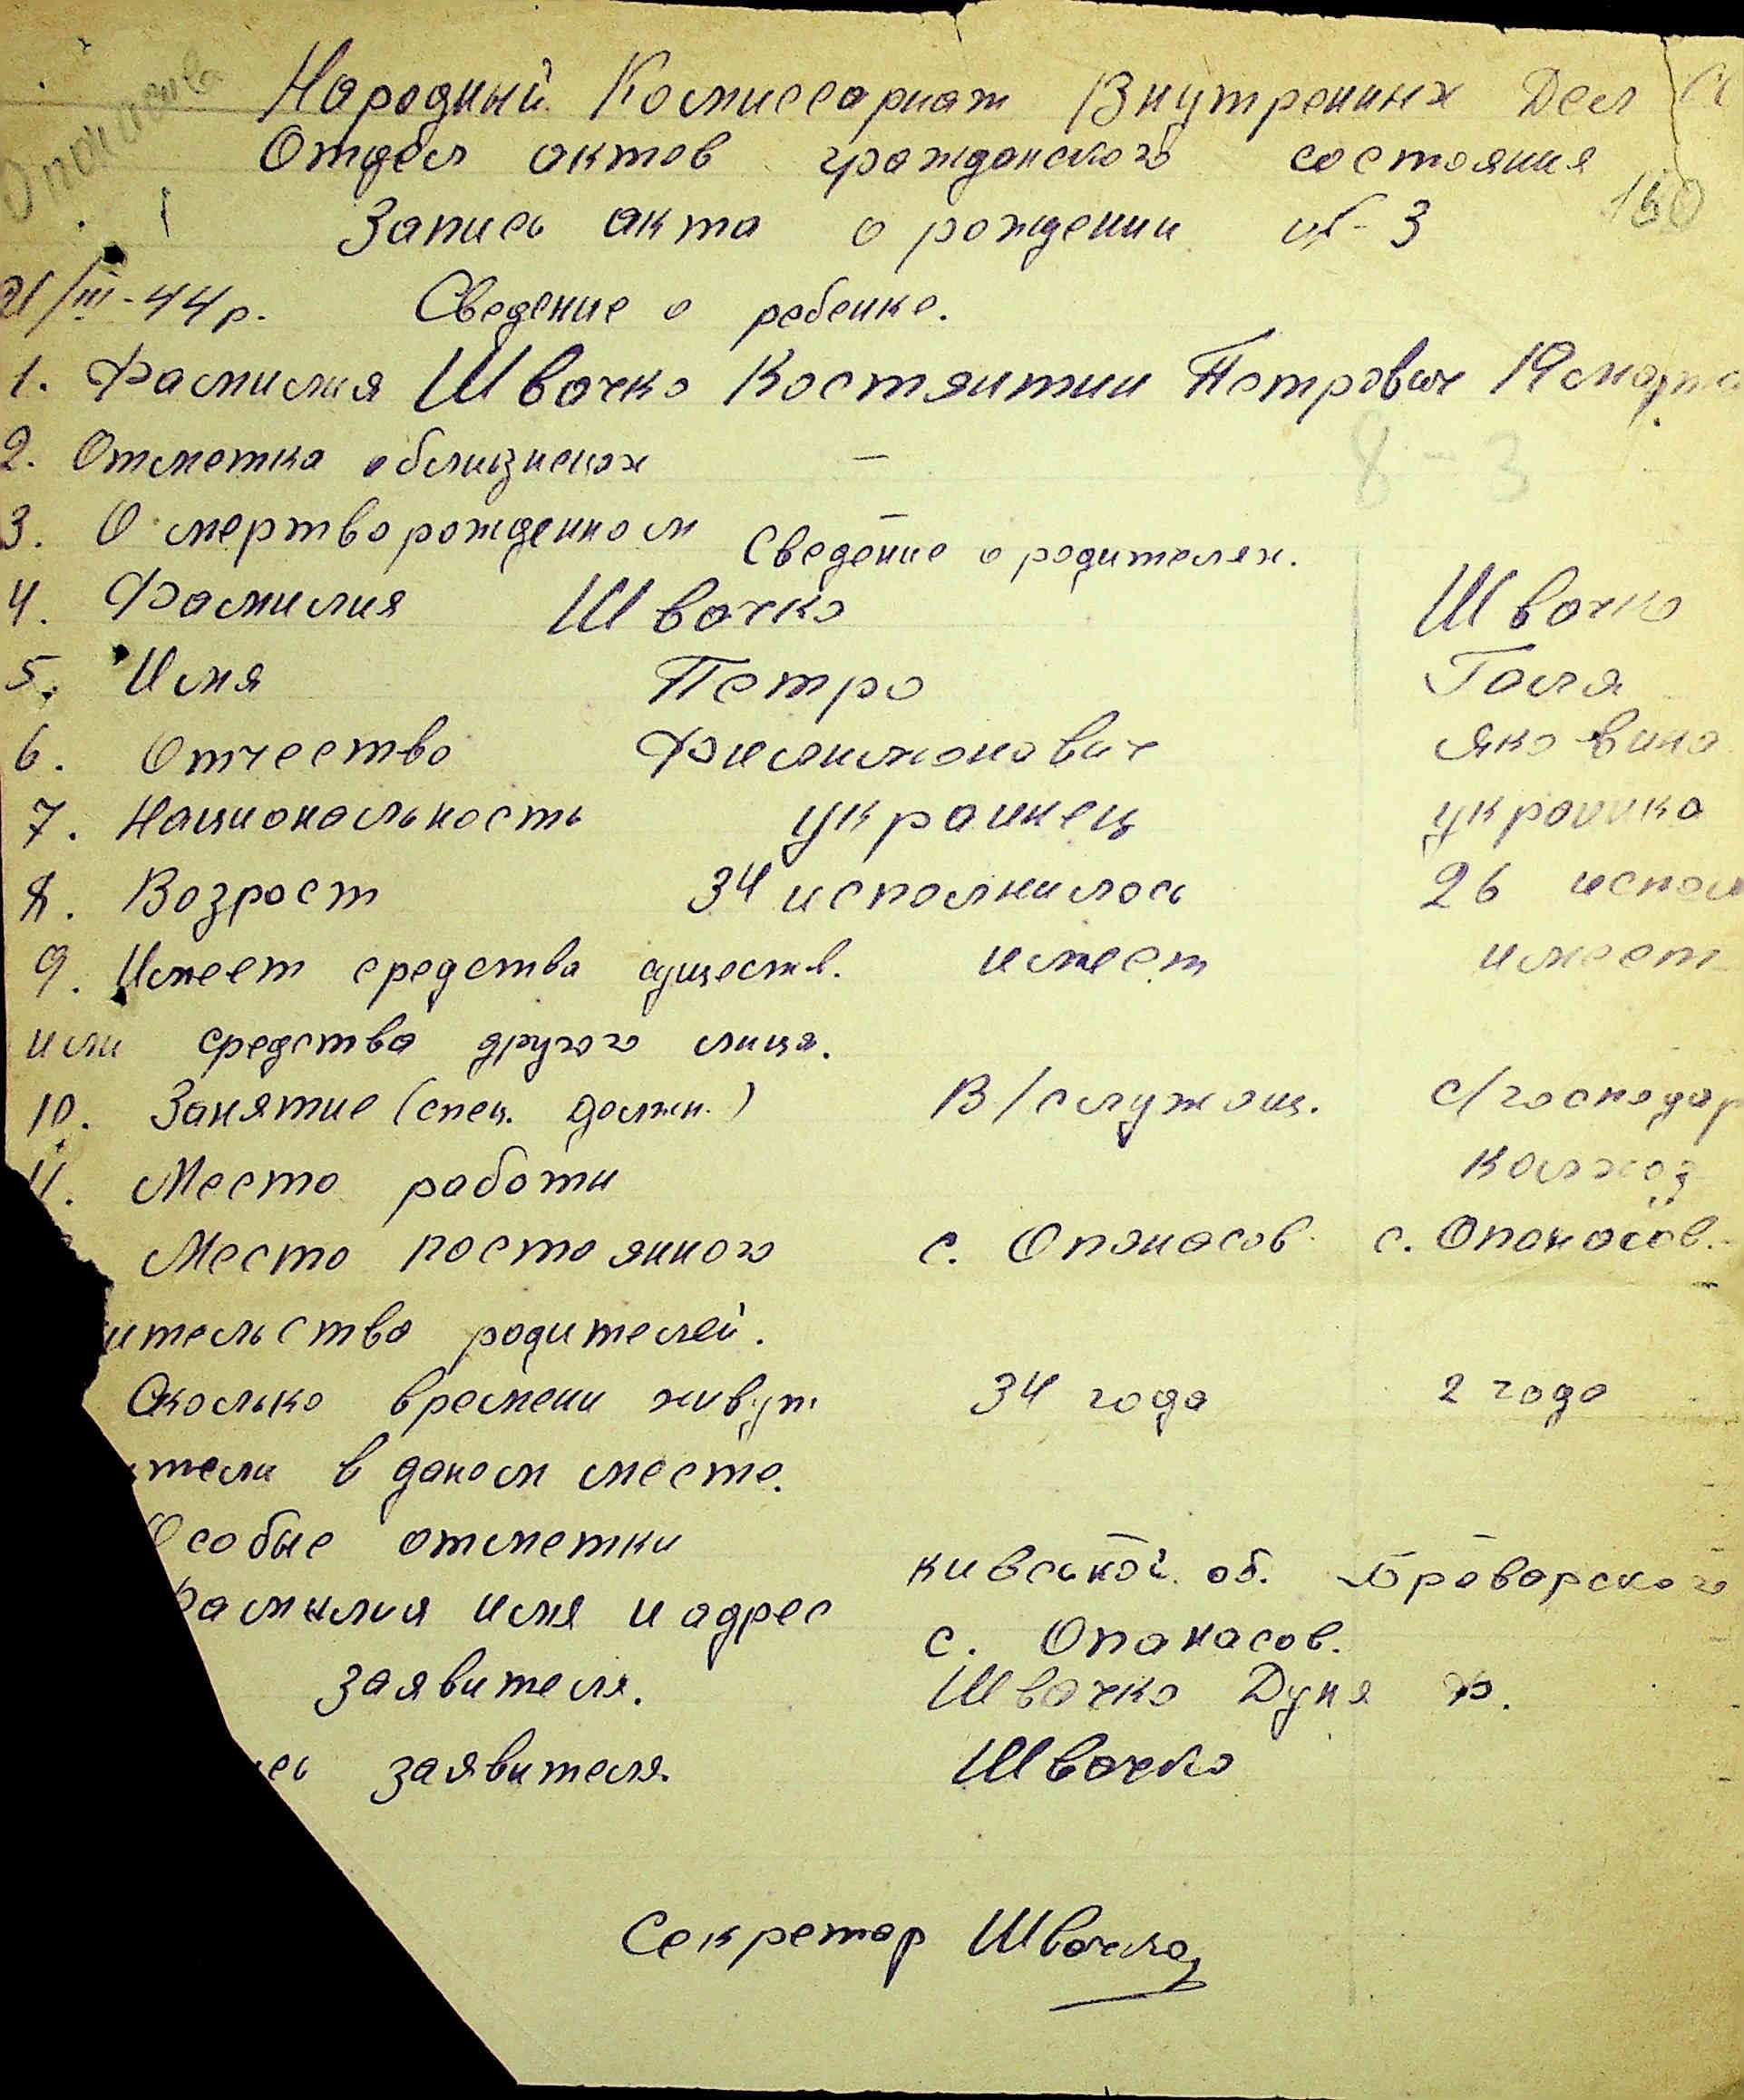 Народний Комиссариат Внутрених Дел
Отдел актов гражданского состояния
160
Запись акта о рождении № 3
21/III-44 р. Сведение о ребенке.
1. Фамилия Швачко Костянтин Петрович 19 марта
2. Отметка о близнецах —
8 - 3
3. О мертворожденном —
Сведение о родителях.
4. Фамилия Швачко Швачко
5. Имя Петро Галя
6. Отчество Филимонович Яковина
7. Национальность украинец украинка
8. Возраст 34 исполнилось 26 испол
9. Имеет средства существ. имеет имеет
или средства другого лица.
10. Занятие (спец. должн.) В/служащ. с/господар
11. Место работи колхоз
Место постоянного с. Опанасов. с. Опанасов.
ительства родителей.
Сколько времени живут 34 года 2 года
тели в даном месте.
Особые отметки
кивськой об. Броварского
Фамилия имя и адрес
с. Опанасов.
заявителя. Швачко Дуня Ф.
ись заявителя. Швачко
Секретар Швачко